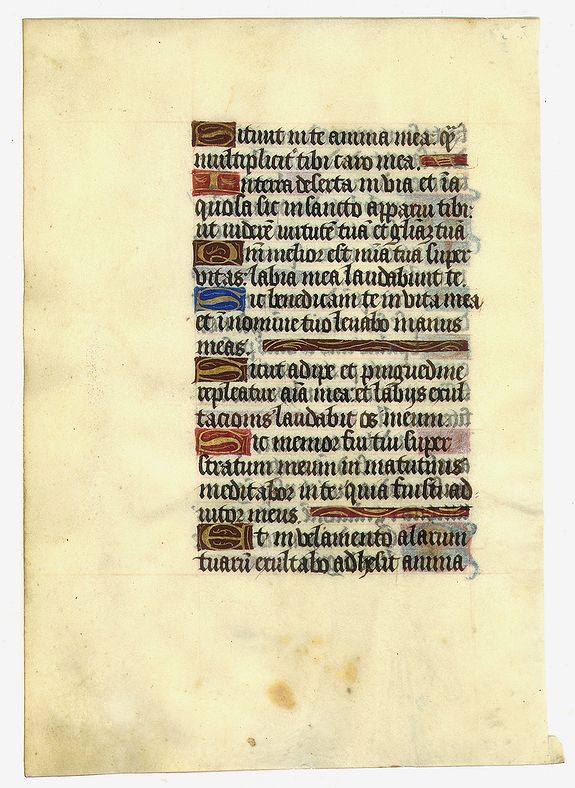 Sitiuit in te anima mea. q̄
multiplicit̾ tibi caro mea.
In terra deserta in via et ī a
quosa sic in sancto apparui tibi:
ut uiderē uirtutē tuā et gliaz tuā
Qm̄ melior est mīa tua super
vitas: labia mea laudabunt te.
Sic benedicam te in vita mea
et ī nomine tuo leuabo manus
meas.
Sicut adipe et pinguedine
repleatur aīa mea: et labijs exul
tacionis laudabit os meum.
Sic memor fui tui super
stratum meum in matutinis
meditabor in te: quia fuisti ad
iutor meus.
Et in velamento alarum
tuarū exultabo adhesit anima